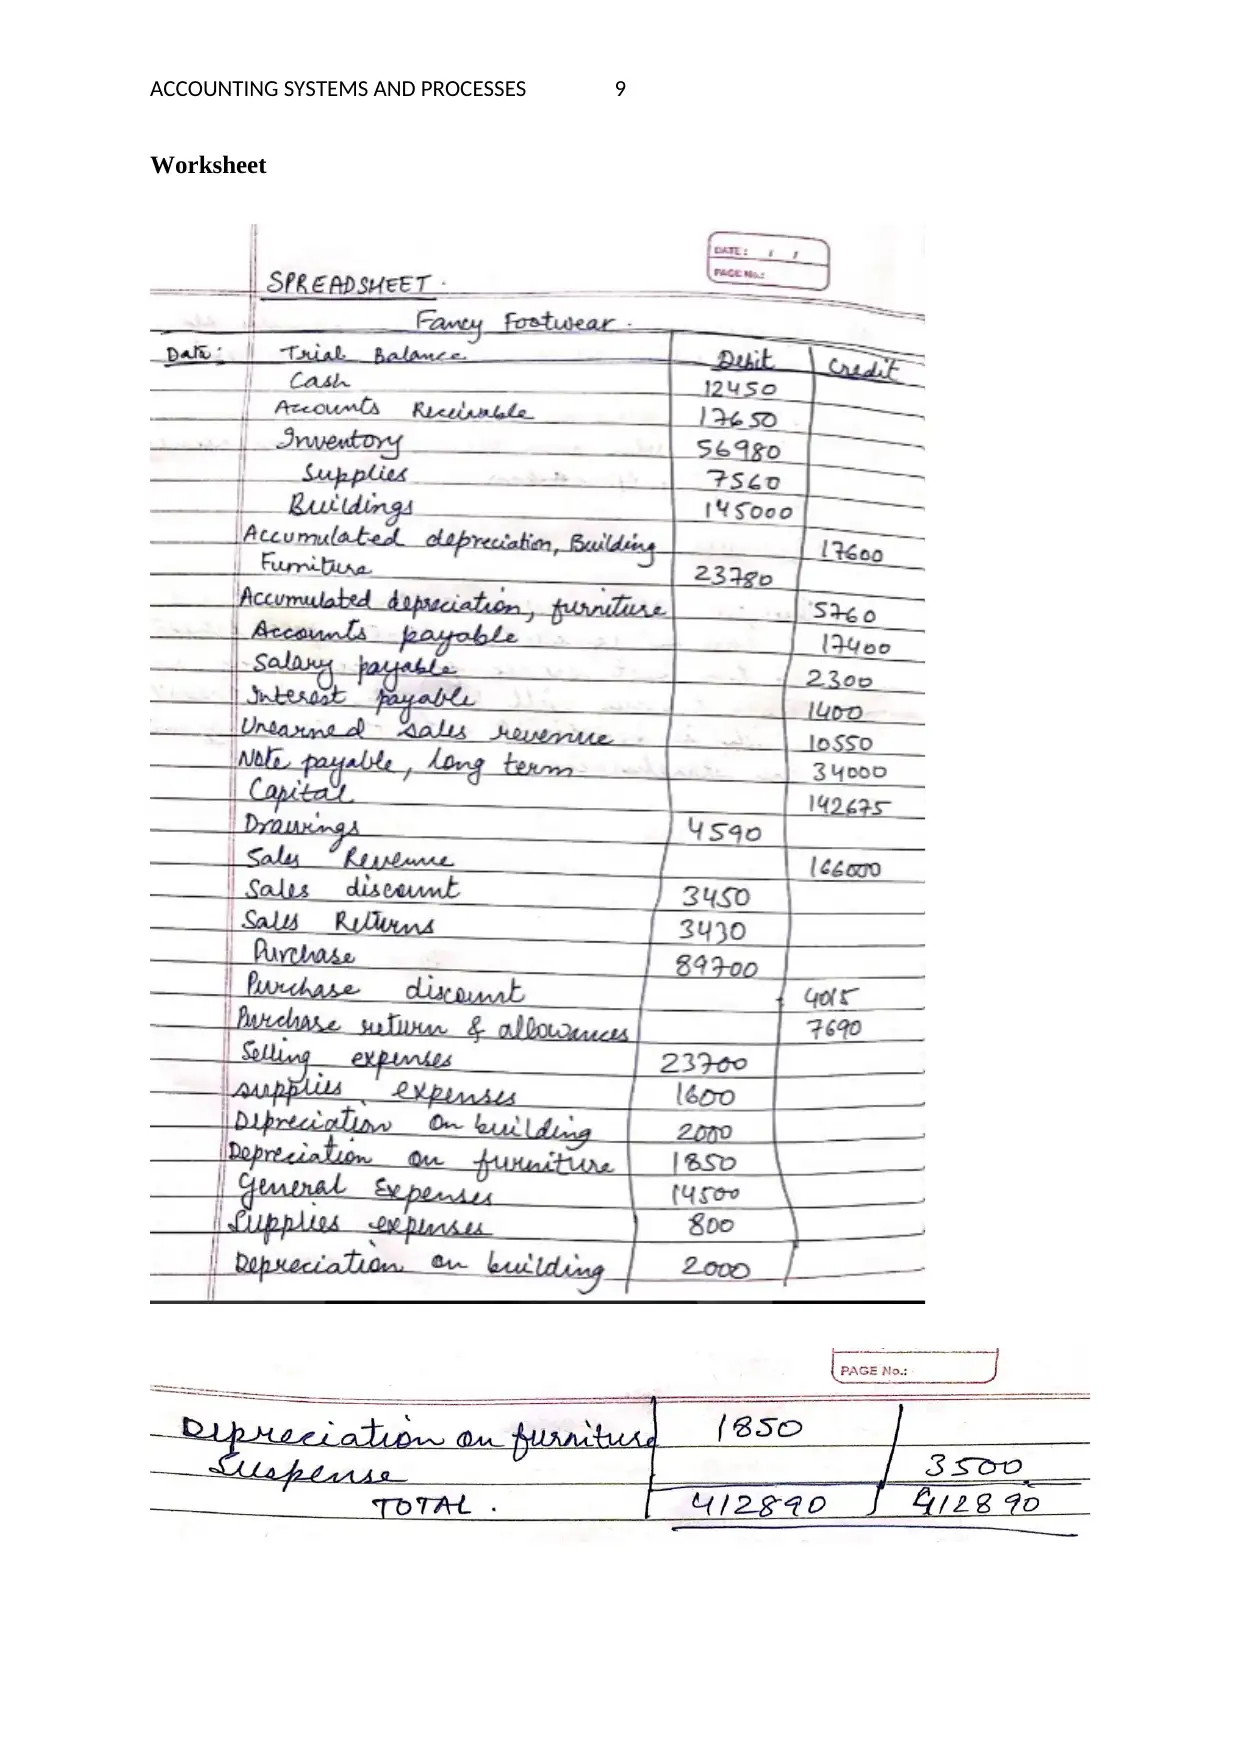 ACCOUNTING SYSTEMS AND PROCESSES 9
Worksheet
DATE: / /
PAGE No.:
SPREADSHEET.
Fancy Footwear.
Date: Trial Balance Debit Credit
Cash 12450
Accounts Receivable 17650
Inventory 56980
Supplies 7560
Buildings 145000
Accumulated depreciation, Building 17600
Furniture 23780
Accumulated depreciation, furniture 5760
Accounts payable 17400
Salary payable 2300
Interest payable 1400
Unearned sales revenue 10550
Note payable, long term 34000
Capital 142675
Drawings 4590
Sales Revenue 166000
Sales discount 3450
Sales Returns 3430
Purchase 89700
Purchase discount 4015
Purchase return & allowances 7690
Selling expenses 23700
supplies expenses 1600
Depreciation on building 2000
Depreciation on furniture 1850
General Expenses 14500
Supplies expenses 800
Depreciation on building 2000
PAGE No.:
Depreciation on furniture 1850
Suspense 3500
TOTAL. 412890 412890